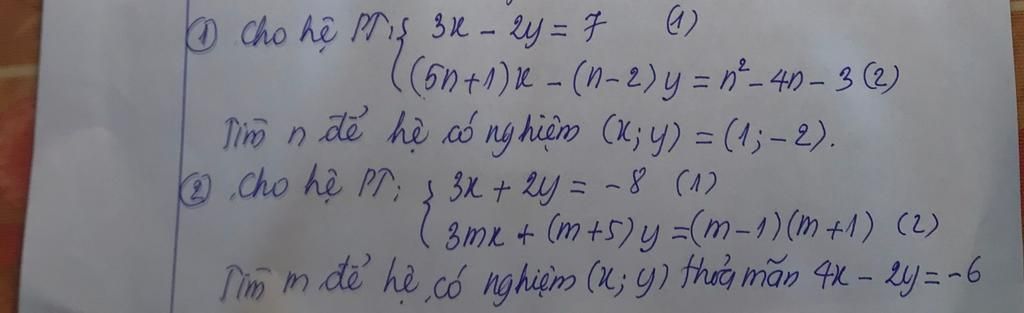 ① Cho hệ PT: { 3x - 2y = 7 (1)
(5n+1)x - (n-2)y = n² - 4n - 3 (2)
Tìm n để hệ có nghiệm (x; y) = (1; -2).
② Cho hệ PT: { 3x + 2y = -8 (1)
3mx + (m+5)y = (m-1)(m+1) (2)
Tìm m để hệ có nghiệm (x; y) thoả mãn 4x - 2y = -6